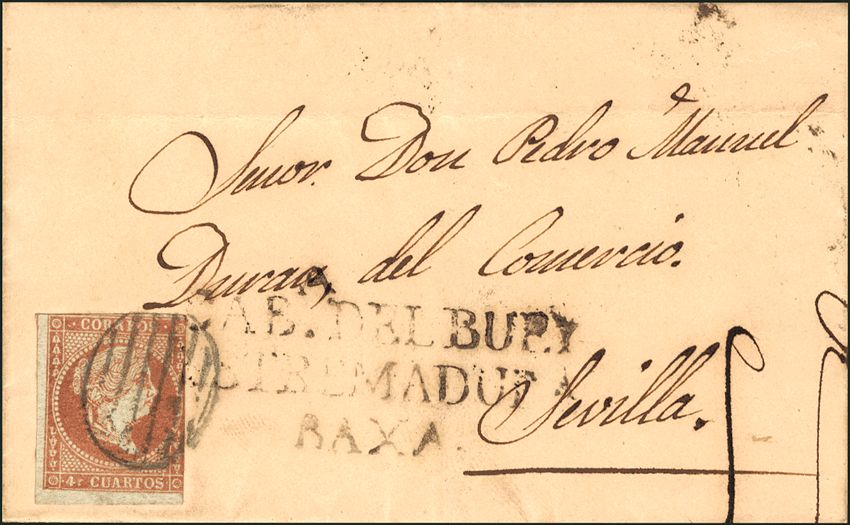 Señor Don Pedro Manuel
Duran, del Comercio.
CAB. DEL BUEY
ESTREMADURA
BAXA.
Sevilla.
CORREOS
4 CUARTOS